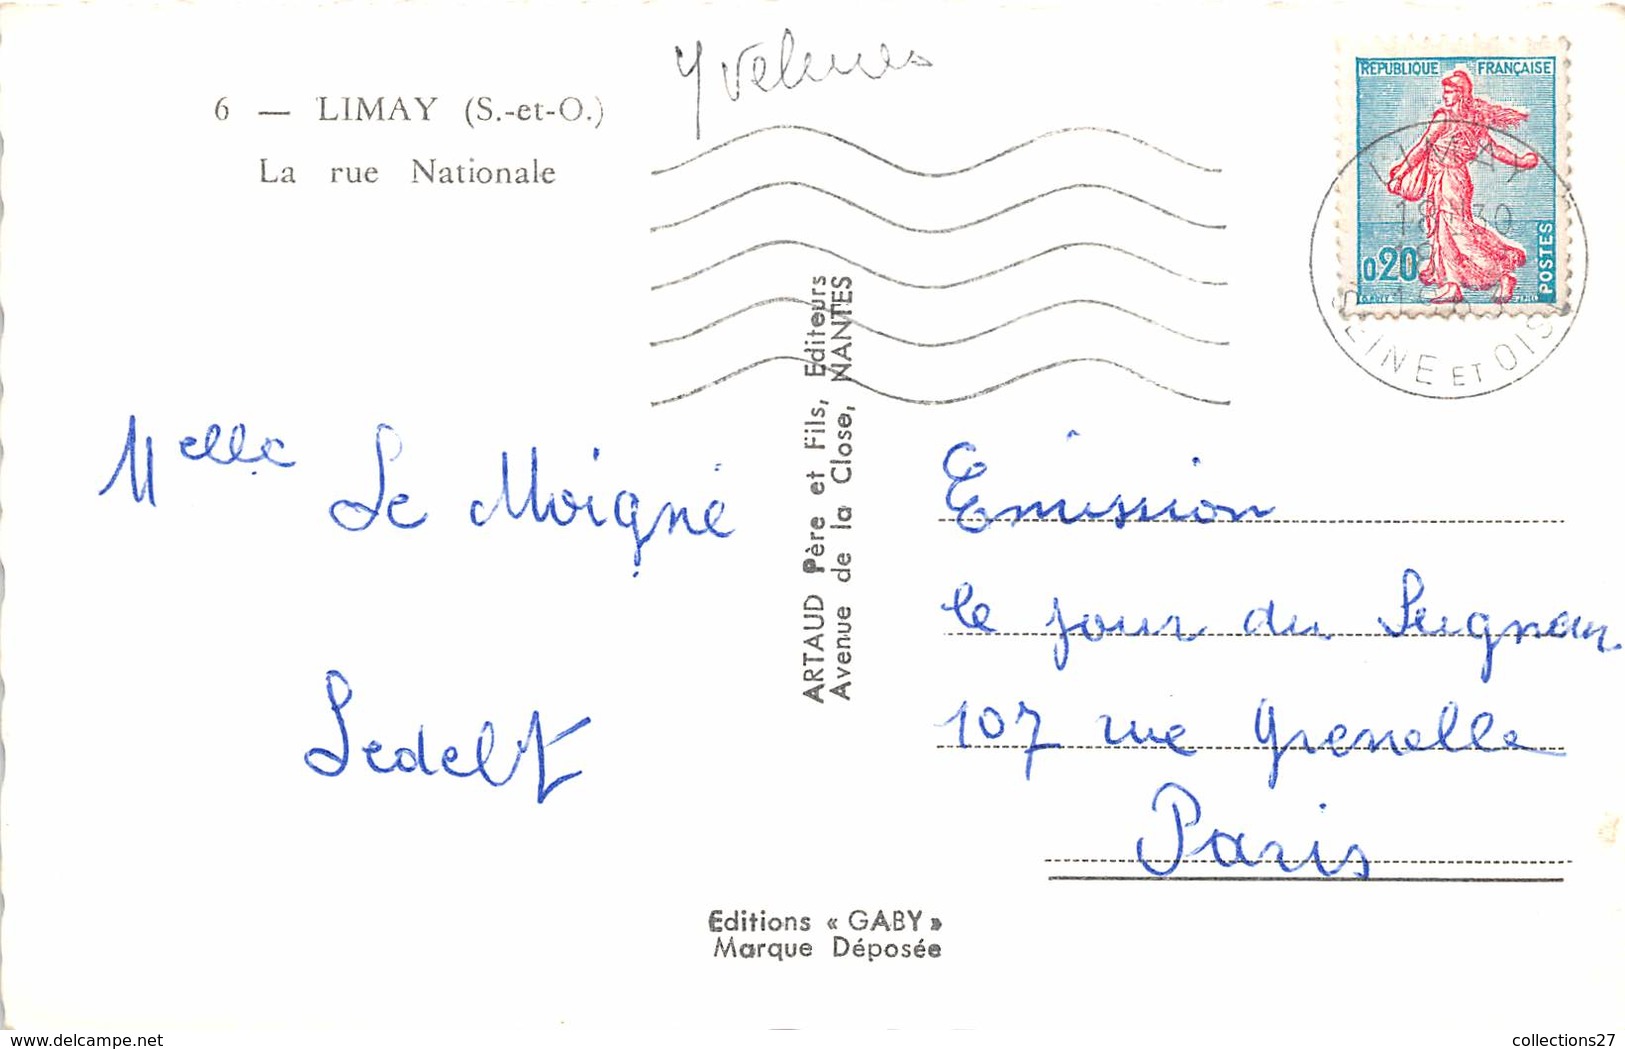 Yvelines
6 — LIMAY (S.-et-O.)
La rue Nationale
REPUBLIQUE FRANÇAISE
0,20
POSTES
LIMAY
SEINE ET OISE
ARTAUD Père et Fils, Editeurs
Avenue de la Close, NANTES
Melle Le Moigne
Emission
le jour du Seigneur
107 rue Grenelle
Paris
Editions « GABY »
Marque Déposée
collections27